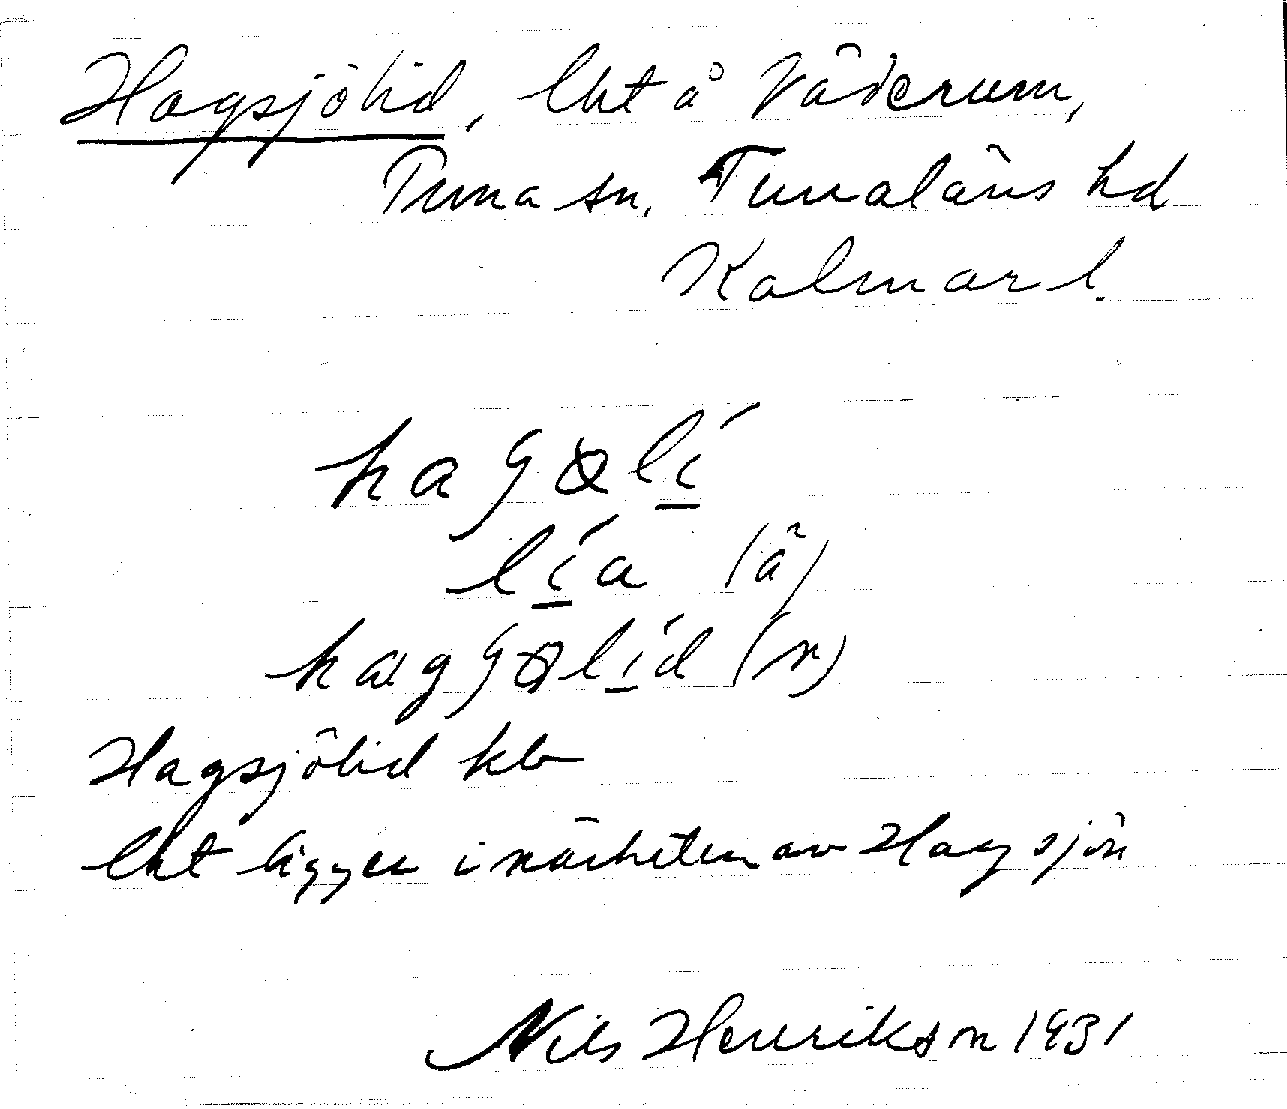 Hagsjölid, lht å Väderum,
Tuna sn, Tunaläns hd
Kalmar l.
lía (ä)
Hagsjölid kb
lht ligger i närheten av Hagsjön
Nils Henrikson 1931